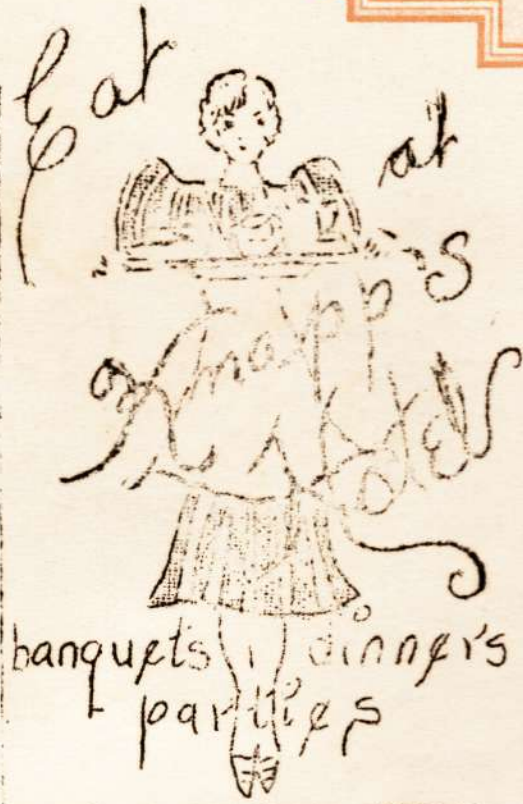 Eat
at
Knapp's
Hotel
banquets dinners
parties